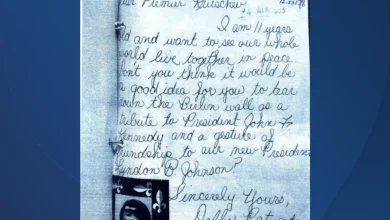 Premier Krutschev
I am 11 years
ld and want to see our whole
world live together in peace.
on't you think it would be
a good idea for you to tear
down the Berlin wall as a
tribute to President John F.
Kennedy and a gesture of
friendship to our new President
Lyndon B Johnson?
Sincerely Yours,